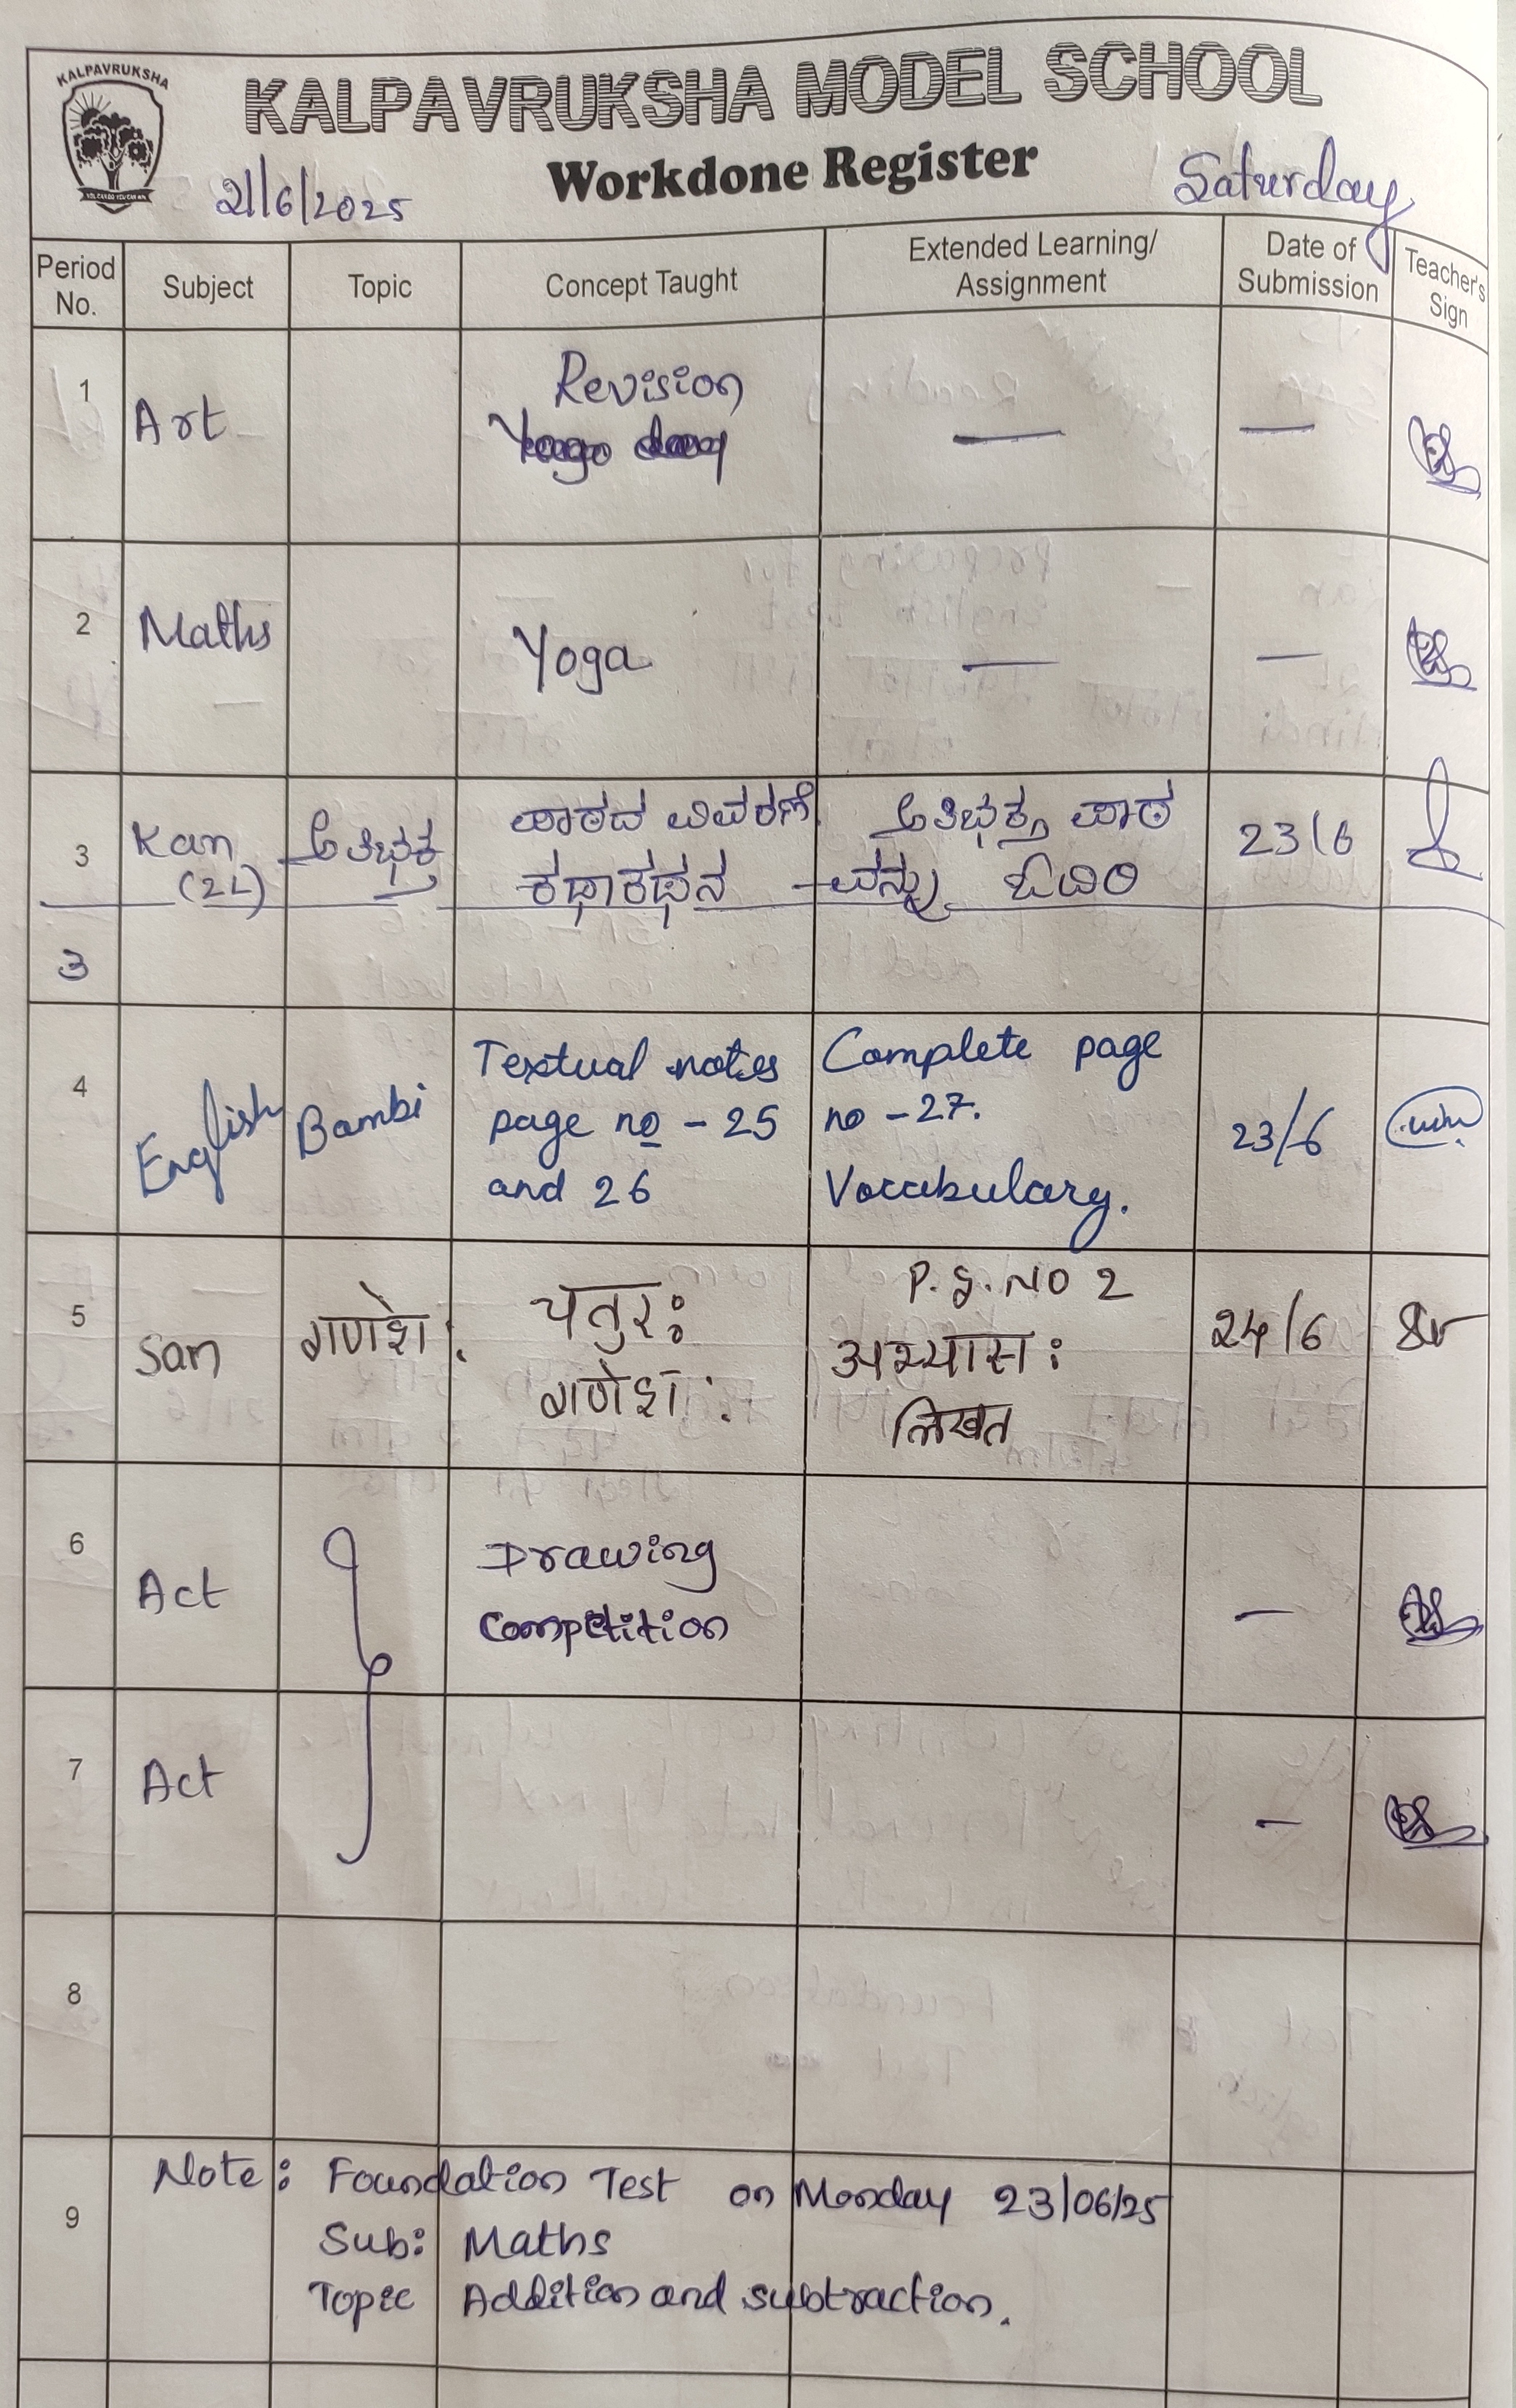 KALPAVRUKSHA
KALPAVRUKSHA MODEL SCHOOL
Workdone Register
21/6/2025 Saturday
Period No. Subject Topic Concept Taught Extended Learning/ Assignment Date of Submission Teacher's Sign
1 Art Revision — —
2 Maths Yoga — —
3 Kan (2L) ಅತಿಭಕ್ತ ಪಾಠದ ವಿವರಣೆ ಅತಿಭಕ್ತ ಪಾಠ 23/6
ಕಥಾಕಥನ -ವನ್ನು ಓದಿರಿ
3
4 English Bambi Textual notes Complete page 23/6
page no - 25 no - 27.
and 26 Vocabulary.
5 San गणेश: चतुर: P.g. NO 2 24/6
गणेश: अभ्यास:
लिखत
6 Act Drawing —
Competition
7 Act —
8
9 Note: Foundation Test on Monday 23/06/25
Sub: Maths
Topic Addition and subtraction.